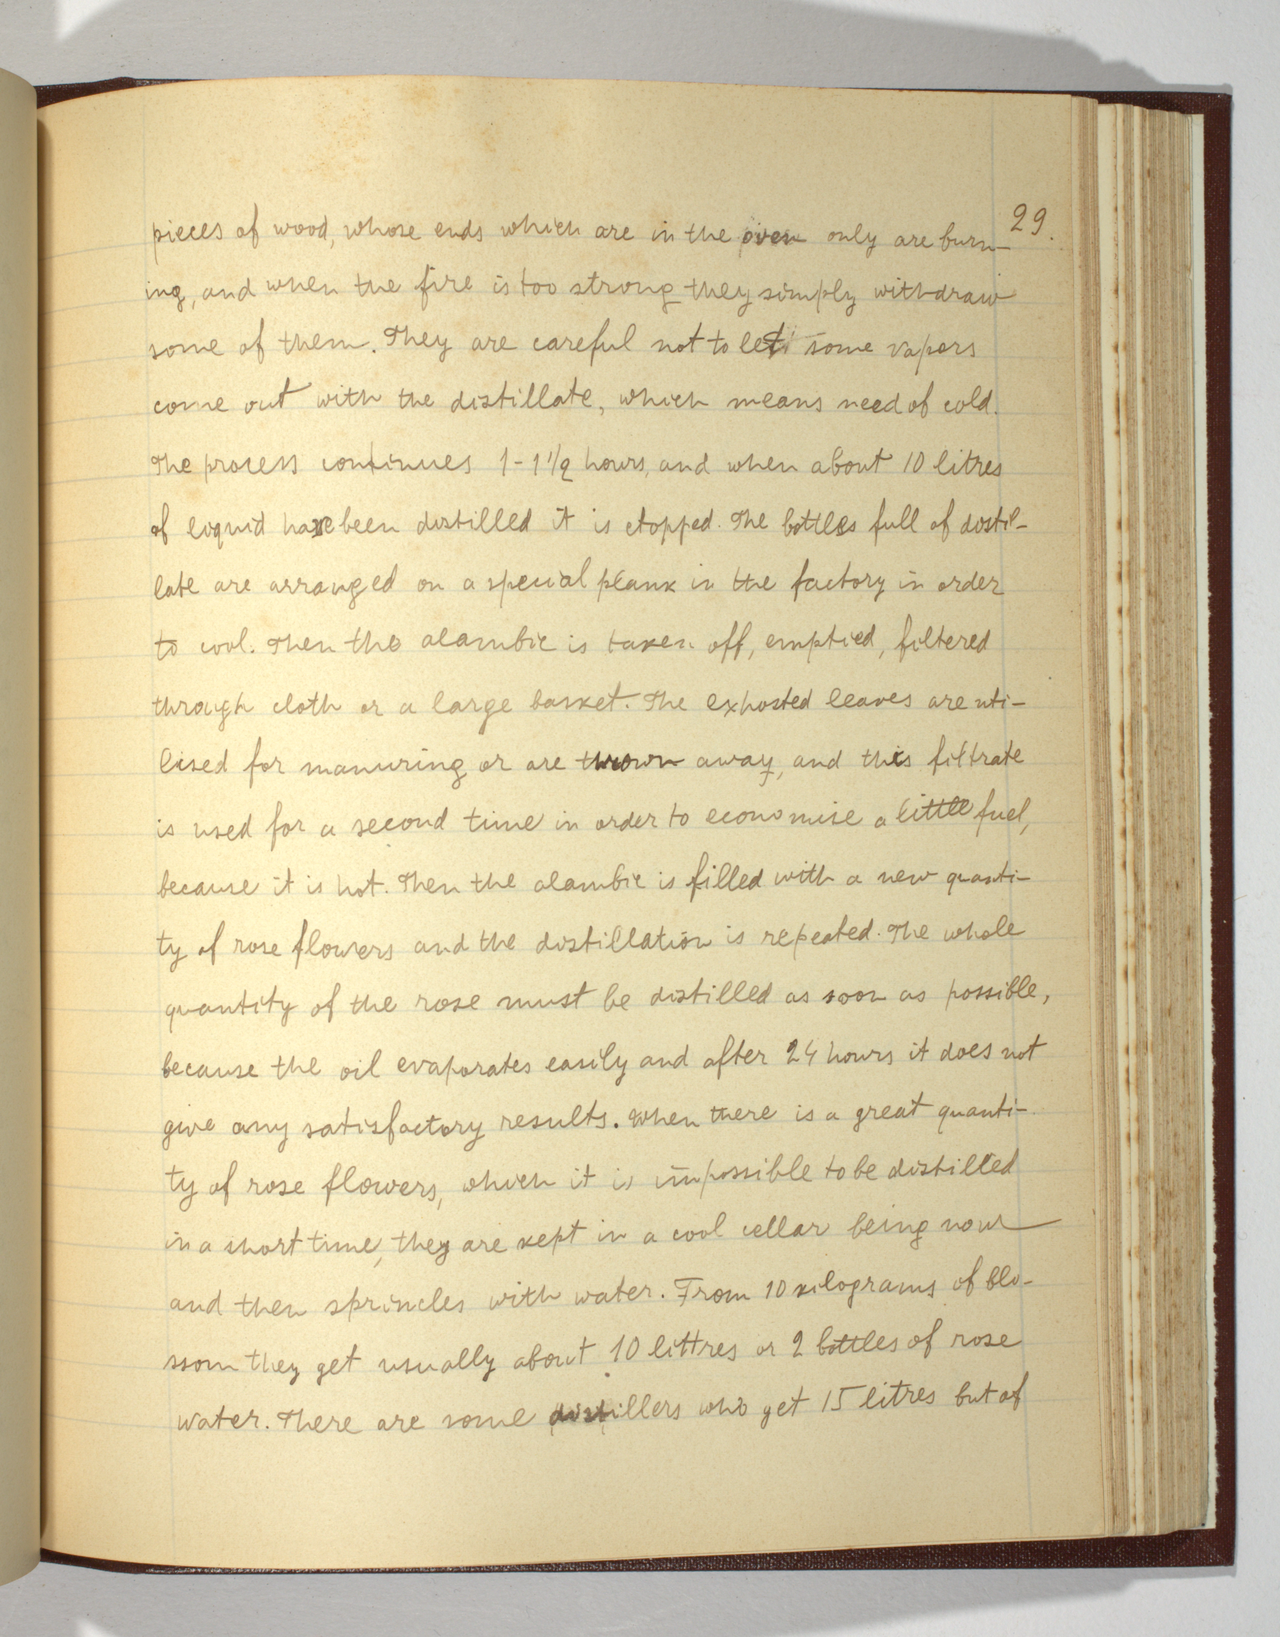 29.
pieces of wood, whose ends which are in the oven only are burn-
ing, and when the fire is too strong they simply withdraw
some of them. They are careful not to let some vapors
come out with the distillate, which means need of cold.
The process continues 1-1 1/2 hours, and when about 10 litres
of liquid have been distilled it is stopped. The bottles full of distil-
late are arranged on a special plank in the factory in order
to cool. Then the alambic is taken off, emptied, filtered
through cloth or a large basket. The exhosted leaves are uti-
lised for manuring or are thrown away, and this filtrate
is used for a second time in order to economise a little fuel,
because it is hot. Then the alambic is filled with a new quanti-
ty of rose flowers and the distillation is repeated. The whole
quantity of the rose must be distilled as soon as possible,
because the oil evaporates easily and after 24 hours it does not
give any satisfactory results. When there is a great quanti-
ty of rose flowers, which it is impossible to be distilled
in a short time, they are kept in a cool cellar being now
and then sprincles with water. From 10 kilograms of blo-
ssom they get usually about 10 littres or 2 bottles of rose
water. There are some distillers who get 15 litres but of